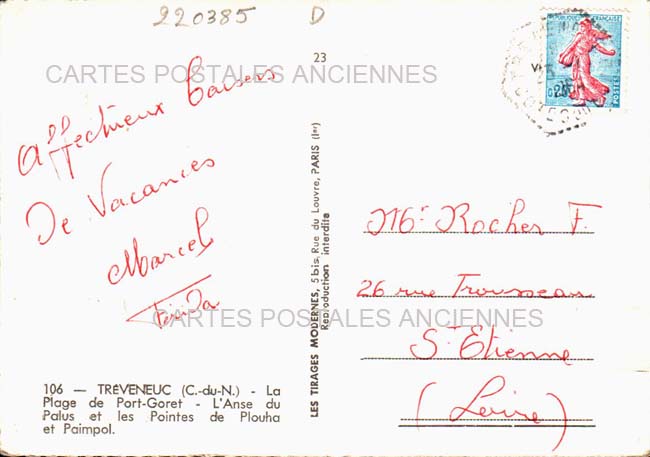 220385 D
23
CARTES POSTALES ANCIENNES
Affectueux Baisers
De Vacances
Marcel
LES TIRAGES MODERNES, 5 bis, Rue du Louvre, PARIS (Ier)
Reproduction interdite
REPUBLIQUE FRANÇAISE
POSTES
Mr Rocher F.
26 rue Trousseau
St Etienne
(Loire)
CARTES POSTALES ANCIENNES
106 — TRÉVENEUC (C.-du-N.) - La
Plage de Port-Goret - L'Anse du
Palus et les Pointes de Plouha
et Paimpol.